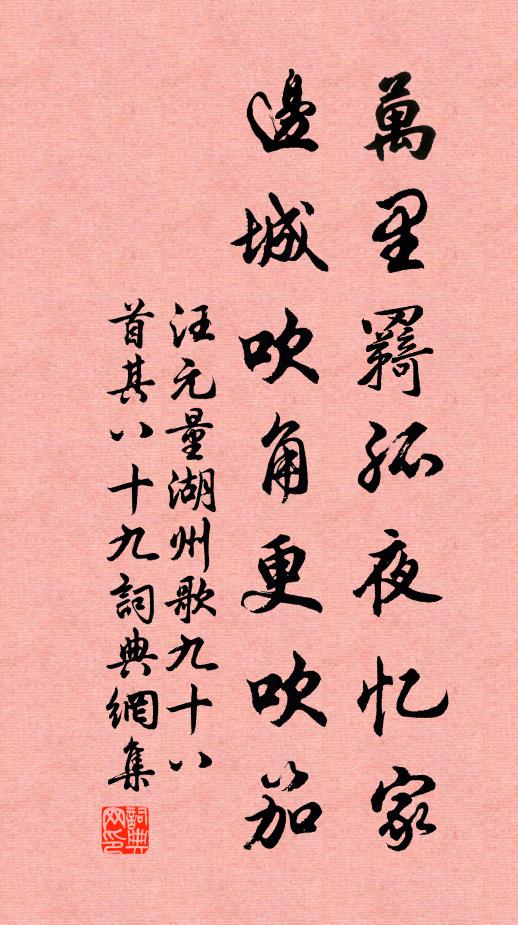 萬里羈孤夜忆家
邊城吹角更吹笳
汪元量湖州歌九十八
首其八十九詞典網集
詞典
网印